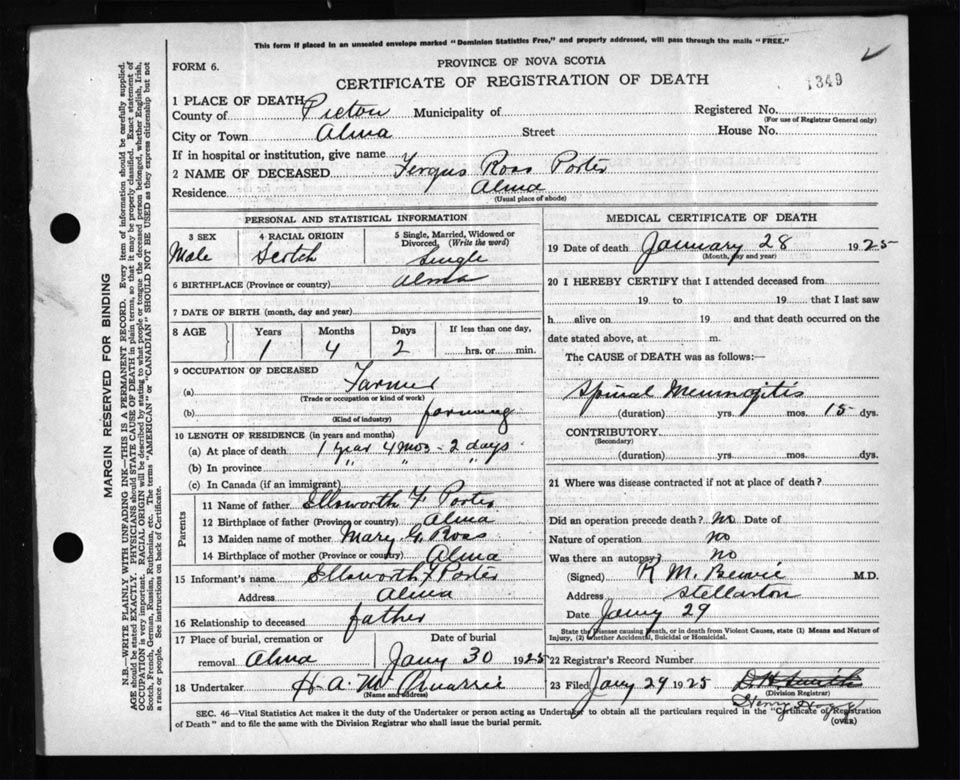 This form if placed in an unsealed envelope marked "Dominion Statistics Free," and properly addressed, will pass through the mails "FREE."
FORM 6.
PROVINCE OF NOVA SCOTIA
CERTIFICATE OF REGISTRATION OF DEATH
1349
1 PLACE OF DEATH
County of Pictou Municipality of Registered No.
(For use of Registrar General only)
City or Town Alma Street House No.
If in hospital or institution, give name
2 NAME OF DECEASED Fergus Ross Porter
Residence Alma
(Usual place of abode)
PERSONAL AND STATISTICAL INFORMATION
3 SEX 4 RACIAL ORIGIN 5 Single, Married, Widowed or Divorced, (Write the word)
Male Scotch Single
6 BIRTHPLACE (Province or country) Alma
7 DATE OF BIRTH (month, day and year)
8 AGE Years Months Days If less than one day,
1 4 2 hrs. or min.
9 OCCUPATION OF DECEASED
(a) Farmer
(Trade or occupation or kind of work)
(b) farming
(Kind of industry)
10 LENGTH OF RESIDENCE (in years and months)
(a) At place of death 1 year 4 mos - 2 days
(b) In province " " "
(c) In Canada (if an immigrant)
Parents
11 Name of father Ellsworth F Porter
12 Birthplace of father (Province or country) Alma
13 Maiden name of mother Mary G. Ross
14 Birthplace of mother (Province or country) Alma
15 Informant's name Ellsworth F Porter
Address Alma
16 Relationship to deceased father
17 Place of burial, cremation or removal Alma
Date of burial
Jany 30 1925
18 Undertaker H. A. Mc
(Name and address)
MEDICAL CERTIFICATE OF DEATH
19 Date of death January 28 1925
(Month, day and year)
20 I HEREBY CERTIFY that I attended deceased from
19 to 19 that I last saw
h alive on 19 and that death occurred on the
date stated above, at m.
The CAUSE of DEATH was as follows:—
Spinal Meningitis
(duration) yrs. mos. 15 dys.
CONTRIBUTORY
(Secondary)
(duration) yrs. mos. dys.
21 Where was disease contracted if not at place of death?
Did an operation precede death? no Date of
Nature of operation no
Was there an autopsy? no
(Signed) M. M.D.
Address Stellarton
Date Jany 29
State the Disease causing Death, or in death from Violent Causes, state (1) Means and Nature of
Injury, (2) Whether Accidental, Suicidal or Homicidal.
22 Registrar's Record Number
23 Filed Jany 29 1925 D. H. Smith
(Division Registrar)
Henry
SEC. 46—Vital Statistics Act makes it the duty of the Undertaker or person acting as Undertaker to obtain all the particulars required in the "Certificate of Registration
of Death" and to file the same with the Division Registrar who shall issue the burial permit.
(OVER)
MARGIN RESERVED FOR BINDING
N.B.—WRITE PLAINLY WITH UNFADING INK—THIS IS A PERMANENT RECORD. Every item of information should be carefully supplied.
AGE should be stated EXACTLY. PHYSICIANS should STATE CAUSE OF DEATH in plain terms, so that it may be properly classified. Exact statement of
OCCUPATION is very important. RACIAL ORIGIN will be described by stating to what people or tongue the deceased person belonged, whether English, Irish,
Scotch, French, German, Russian, Ruthenian, etc. The terms "AMERICAN" or "CANADIAN" SHOULD NOT BE USED as they express citizenship but not
a race or people. See instructions on back of Certificate.